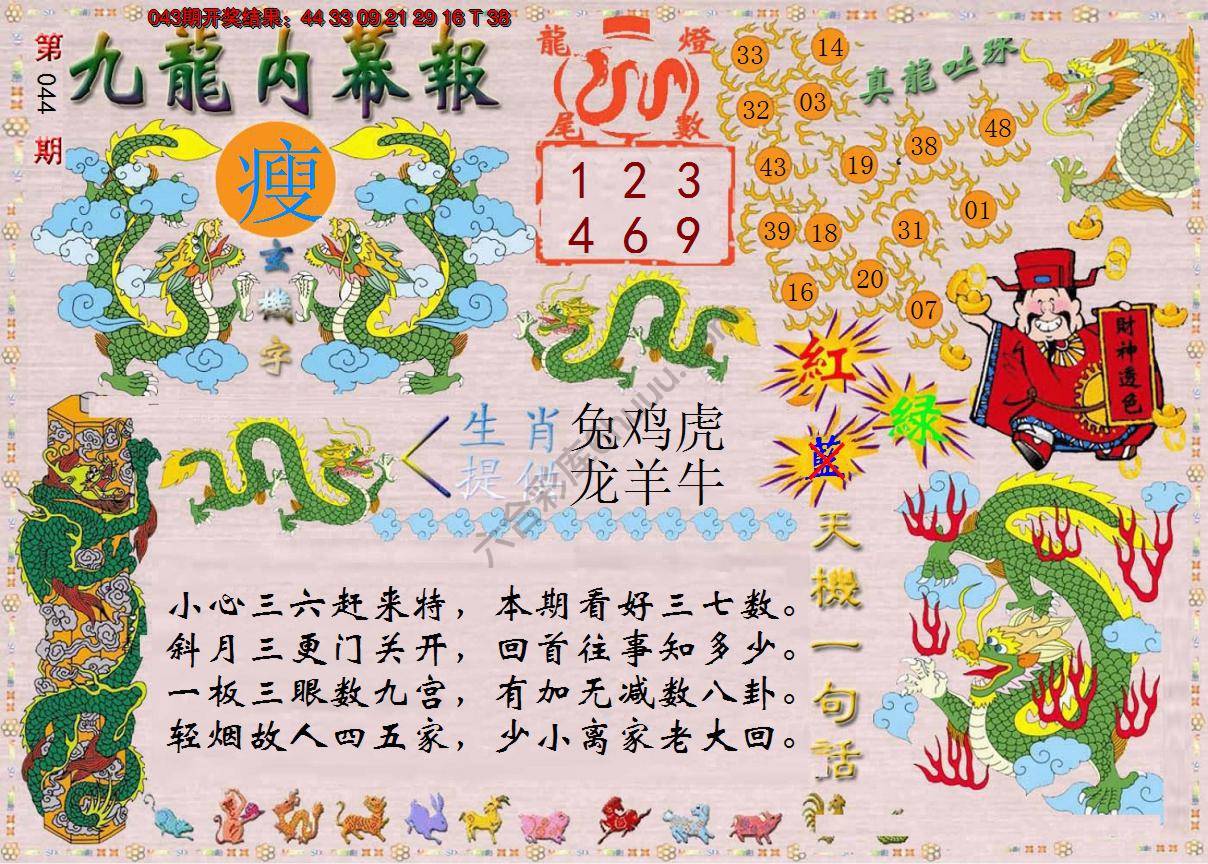 043期开奖结果：44 33 09 21 29 16 T 38
第044期
九龍内幕報
瘦
玄機字
龍燈
尾數
1 2 3
4 6 9
真龍吐珠
33 14
32 03
43 19 38 48
39 18 31 01
16 20 07
財神透色
紅
綠
藍
生肖 兔鸡虎
提供 龙羊牛
天機一句話
小心三六赶来特，本期看好三七数。
斜月三更门关开，回首往事知多少。
一板三眼数九宫，有加无减数八卦。
轻烟故人四五家，少小离家老大回。